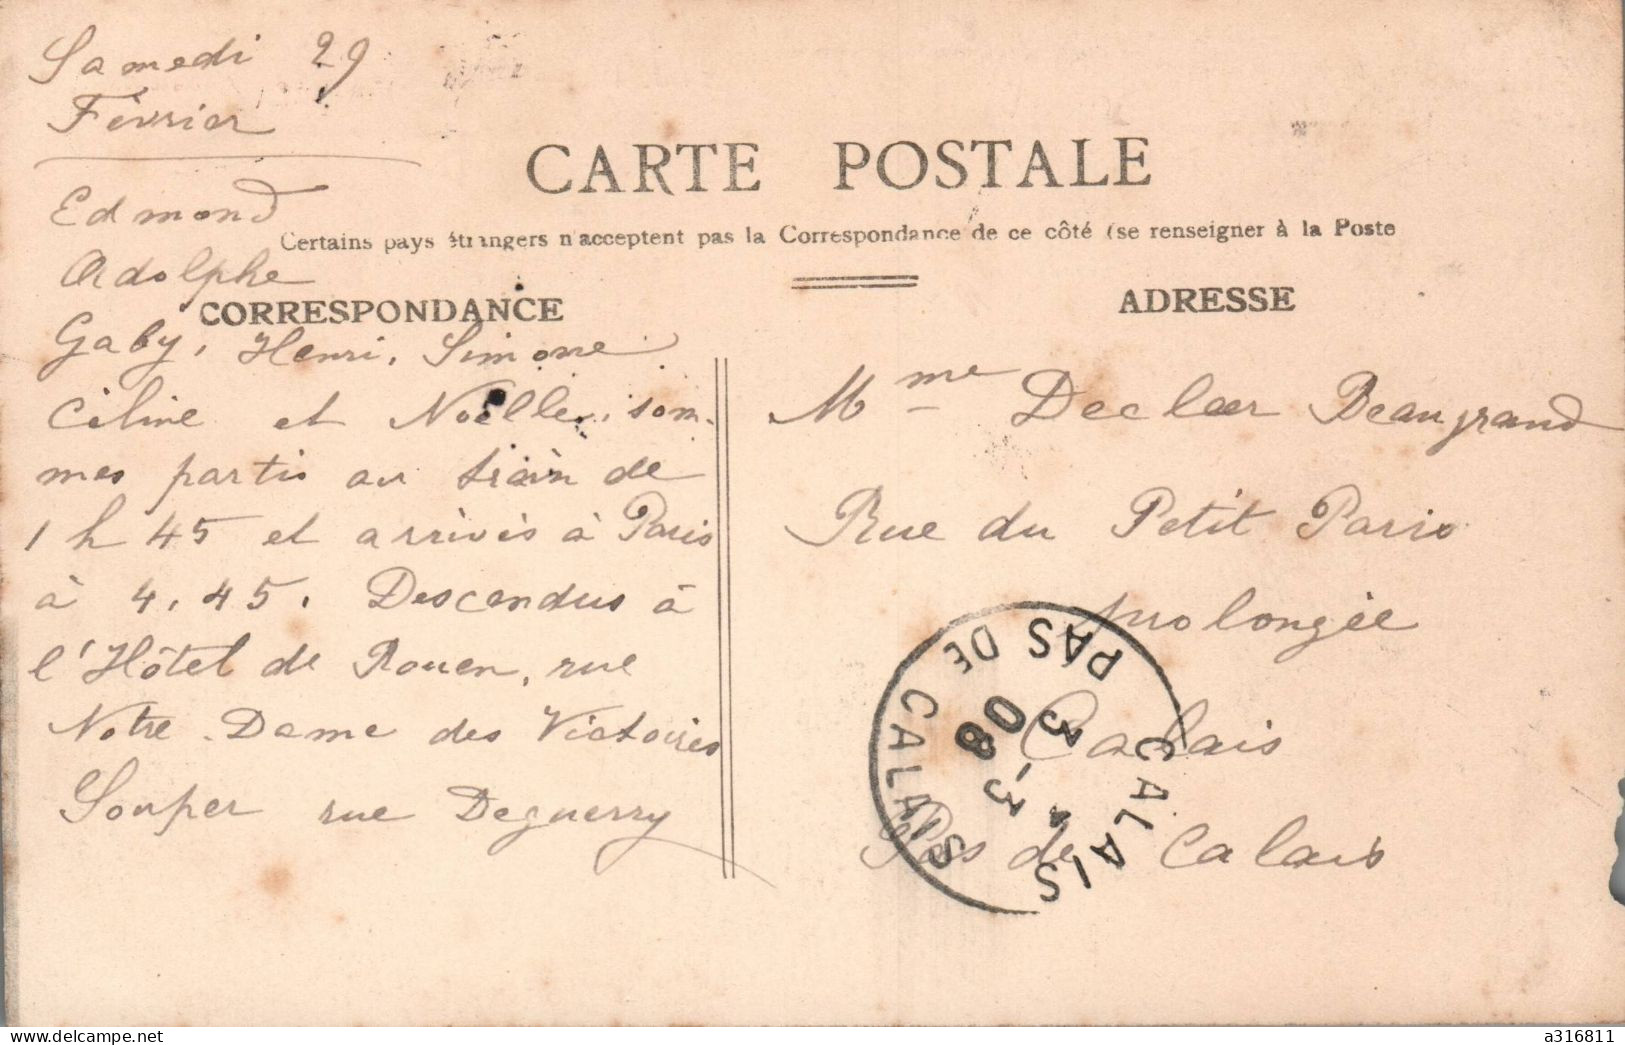 Samedi 29
Février
CARTE POSTALE
Certains pays étrangers n'acceptent pas la Correspondance de ce côté (se renseigner à la Poste
CORRESPONDANCE
Edmond
Adolphe
Gaby, Henri, Simone
Céline et Noëlle, som-
mes partis au train de
1 h 45 et arrivés à Paris
à 4.45. Descendus à
l'Hôtel de Rouen, rue
Notre-Dame des Victoires
Souper rue Deguerry
ADRESSE
Mme Declaer Beaugrand
Rue du Petit Paris
prolongée
Calais
Pas de Calais
CALAIS
PAS DE CALAIS
3 -3
08
www.delcampe.net
a316811